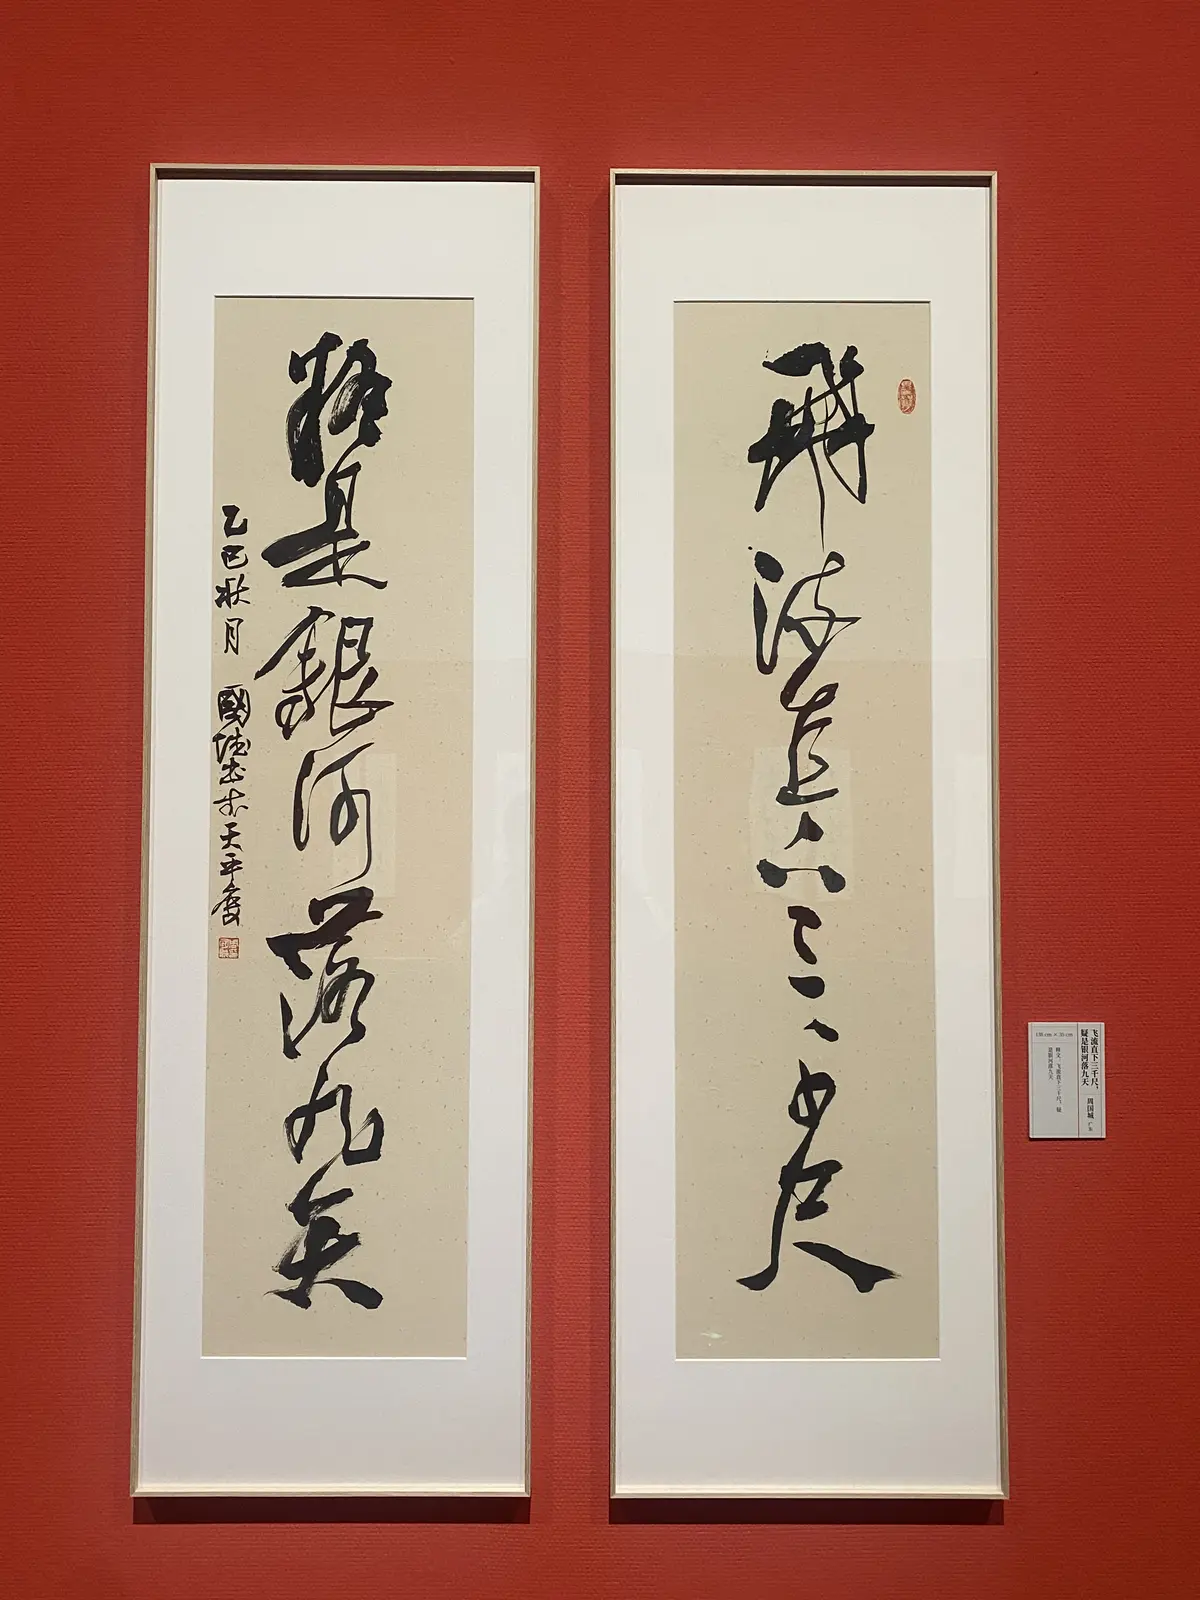 飛流直下三千尺
疑是銀河落九天
乙巳秋月 國城書於天平處
飞流直下三千尺，
疑是银河落九天
周国城 广东
138 cm × 35 cm
释文：飞流直下三千尺，疑
是银河落九天